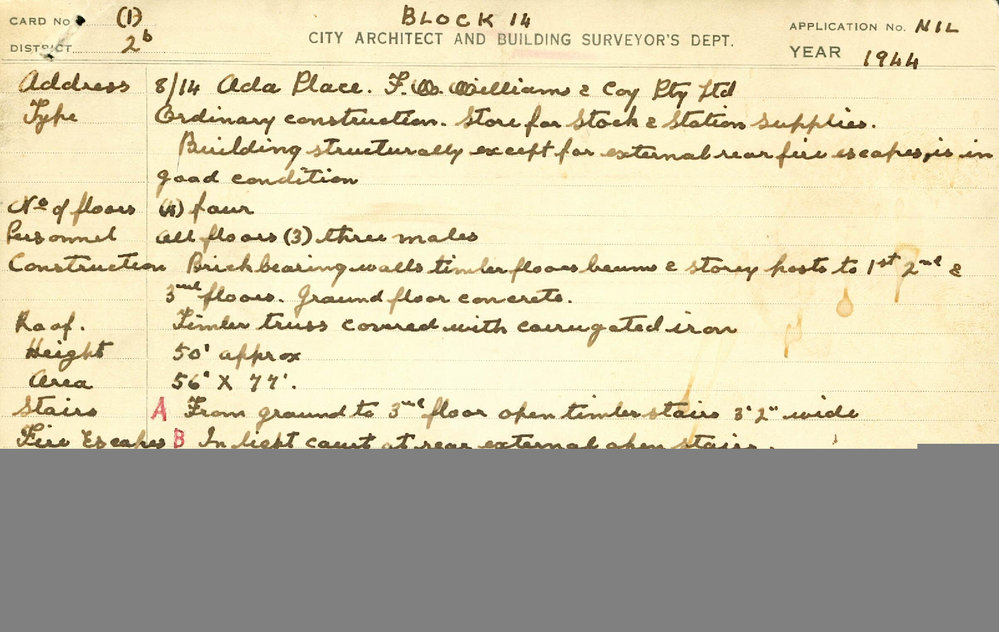 CARD No. (1) BLOCK 14 APPLICATION No. NIL
DISTRICT 2b CITY ARCHITECT AND BUILDING SURVEYOR'S DEPT. YEAR 1944
Address 8/14 Ada Place. F. W. Williams & Coy Pty Ltd
Type Ordinary construction. Store for Stock & Station Supplies.
Building structurally except for external rear fire escapes, is in
good condition
No of floors (4) four
Personnel All floors (3) three males
Construction Brick bearing walls timber floors beams & storey posts to 1st 2nd &
3rd floors. Ground floor concrete.
Roof. Timber truss covered with corrugated iron
Height 50' approx
Area 56' X 77'.
Stairs A From ground to 3rd floor open timber stairs 3'2" wide
Fire Escapes B In light court at rear external open stairs.